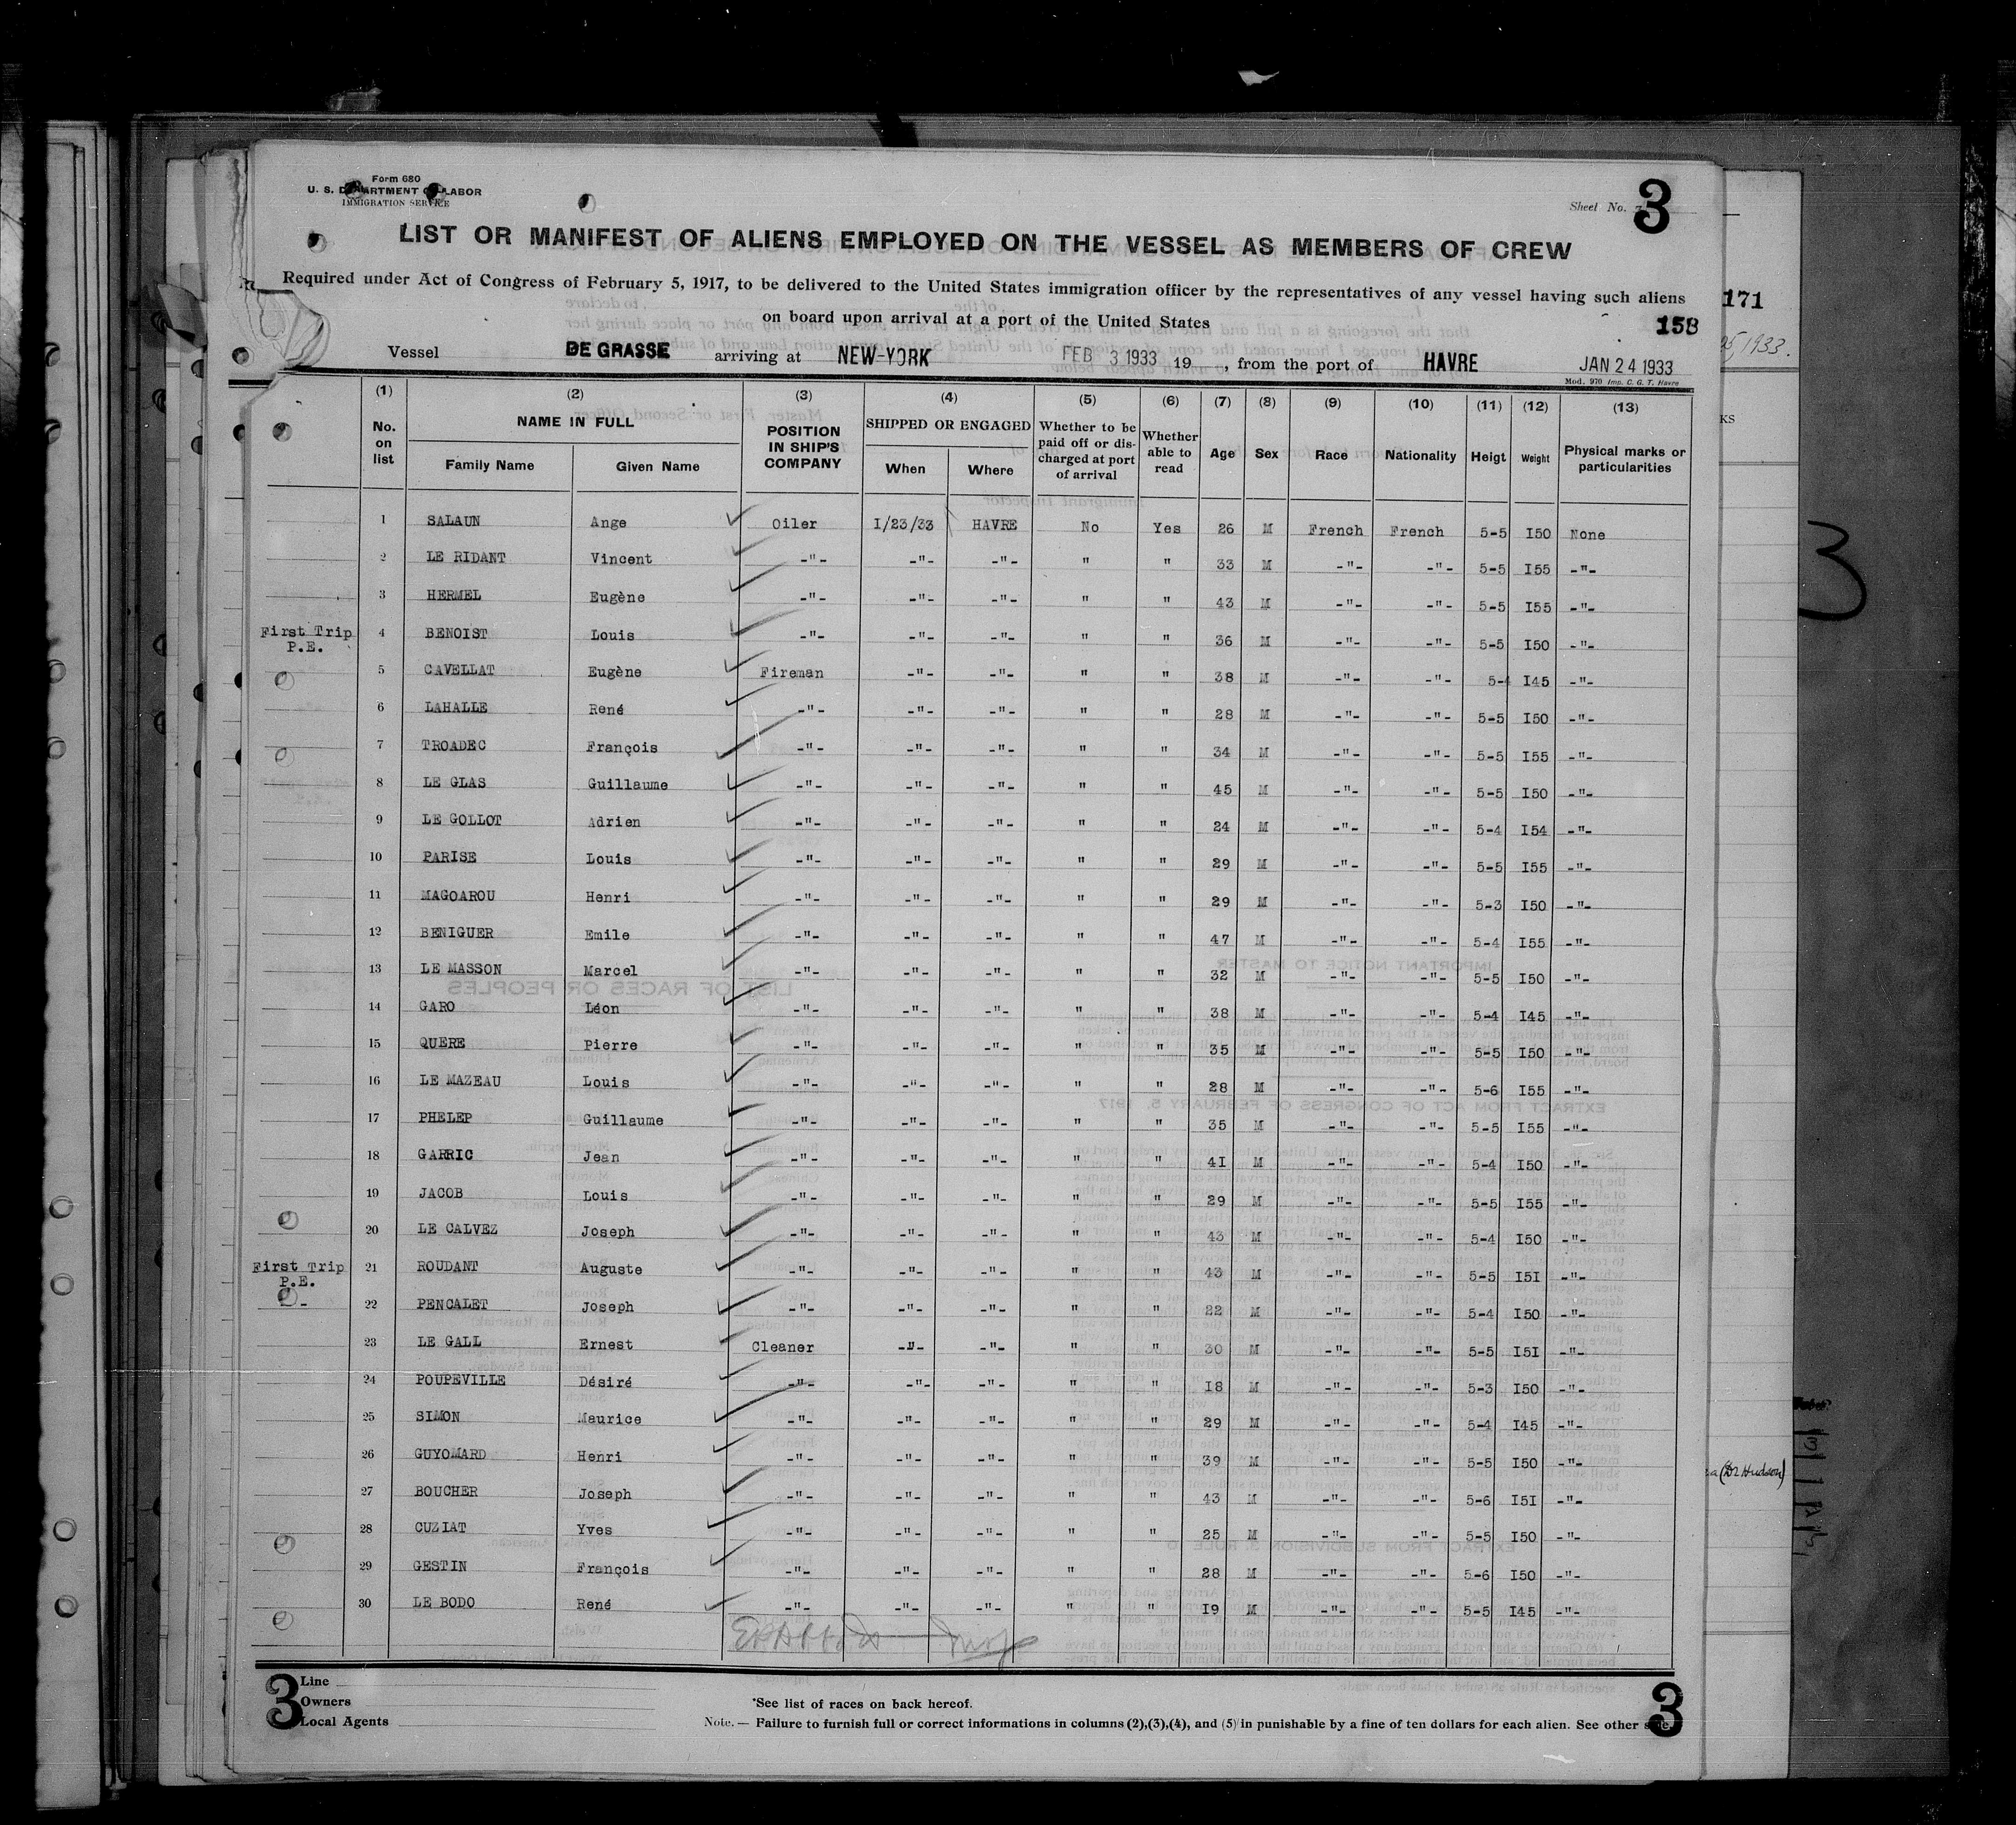 Form 680
U. S. DEPARTMENT OF LABOR
IMMIGRATION SERVICE
Sheet No. 3
LIST OR MANIFEST OF ALIENS EMPLOYED ON THE VESSEL AS MEMBERS OF CREW
Required under Act of Congress of February 5, 1917, to be delivered to the United States immigration officer by the representatives of any vessel having such aliens
on board upon arrival at a port of the United States
158
171
1933.
Vessel DE GRASSE arriving at NEW-YORK FEB 3 1933 19 , from the port of HAVRE JAN 24 1933
Mod. 970 Imp. C. G. T. Havre
(1) (2) (3) (4) (5) (6) (7) (8) (9) (10) (11) (12) (13)
No. on list NAME IN FULL Family Name Given Name POSITION IN SHIP'S COMPANY SHIPPED OR ENGAGED When Where Whether to be paid off or discharged at port of arrival Whether able to read Age Sex Race Nationality Heigt Weight Physical marks or particularities
KS
1 SALAUN Ange Oiler I/23/33 HAVRE No Yes 26 M French French 5-5 I50 None
2 LE RIDANT Vincent -"- -"- -"- " " 33 M -"- -"- 5-5 I55 -"-
3 HERMEL Eugène -"- -"- -"- " " 43 M -"- -"- 5-5 I55 -"-
First Trip P.E. 4 BENOIST Louis -"- -"- -"- " " 36 M -"- -"- 5-5 I50 -"-
5 CAVELLAT Eugène Fireman -"- -"- " " 38 M -"- -"- 5-4 I45 -"-
6 LAHALLE René -"- -"- -"- " " 28 M -"- -"- 5-5 I50 -"-
7 TROADEC François -"- -"- -"- " " 34 M -"- -"- 5-5 I55 -"-
8 LE GLAS Guillaume -"- -"- -"- " " 45 M -"- -"- 5-5 I50 -"-
9 LE GOLLOT Adrien -"- -"- -"- " " 24 M -"- -"- 5-4 I54 -"-
10 PARISE Louis -"- -"- -"- " " 29 M -"- -"- 5-5 I55 -"-
11 MAGOAROU Henri -"- -"- -"- " " 29 M -"- -"- 5-3 I50 -"-
12 BENIGUER Emile -"- -"- -"- " " 47 M -"- -"- 5-4 I55 -"-
13 LE MASSON Marcel -"- -"- -"- " " 32 M -"- -"- 5-5 I50 -"-
14 GARO Léon -"- -"- -"- " " 38 M -"- -"- 5-4 I45 -"-
15 QUERE Pierre -"- -"- -"- " " 35 M -"- -"- 5-5 I50 -"-
16 LE MAZEAU Louis -"- -"- -"- " " 28 M -"- -"- 5-6 I55 -"-
17 PHELEP Guillaume -"- -"- -"- " " 35 M -"- -"- 5-5 I55 -"-
18 GARRIC Jean -"- -"- -"- " " 4I M -"- -"- 5-4 I50 -"-
19 JACOB Louis -"- -"- -"- " " 29 M -"- -"- 5-5 I55 -"-
20 LE CALVEZ Joseph -"- -"- -"- " " 43 M -"- -"- 5-4 I50 -"-
First Trip P.E. 21 ROUDANT Auguste -"- -"- -"- " " 43 M -"- -"- 5-5 I5I -"-
22 PENCALET Joseph -"- -"- -"- " " 22 M -"- -"- 5-4 I50 -"-
23 LE GALL Ernest Cleaner -"- -"- " " 30 M -"- -"- 5-5 I5I -"-
24 POUPEVILLE Désiré -"- -"- -"- " " I8 M -"- -"- 5-3 I50 -"-
25 SIMON Maurice -"- -"- -"- " " 29 M -"- -"- 5-4 I45 -"-
26 GUYOMARD Henri -"- -"- -"- " " 39 M -"- -"- 5-5 I50 -"-
27 BOUCHER Joseph -"- -"- -"- " " 43 M -"- -"- 5-6 I5I -"-
28 CUZIAT Yves -"- -"- -"- " " 25 M -"- -"- 5-5 I50 -"-
29 GESTIN François -"- -"- -"- " " 28 M -"- -"- 5-6 I50 -"-
30 LE BODO René -"- -"- -"- " " I9 M -"- -"- 5-5 I45 -"-
3
Hudson)
3 Line
Owners
Local Agents
*See list of races on back hereof.
Note. — Failure to furnish full or correct informations in columns (2),(3),(4), and (5) in punishable by a fine of ten dollars for each alien. See other side.
3